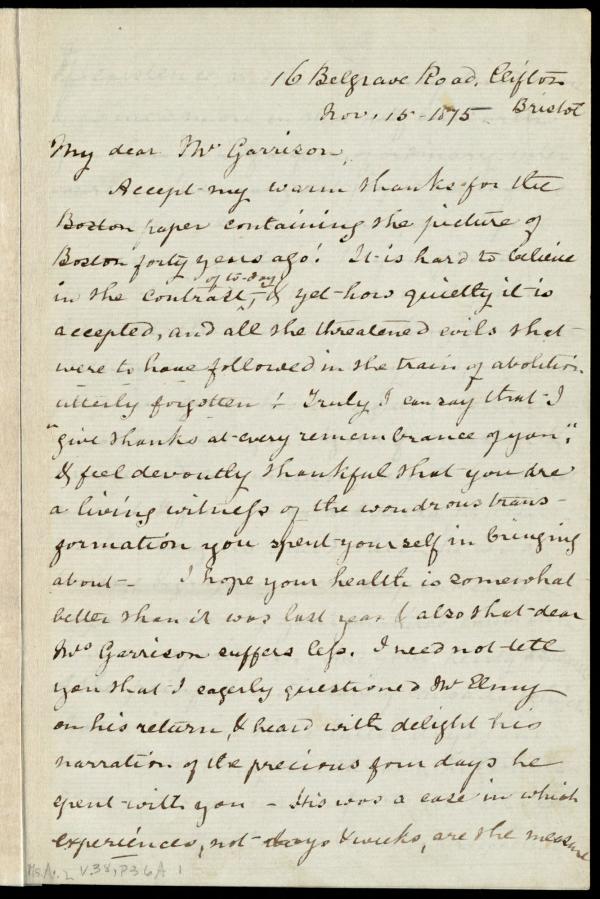 16 Belgrave Road, Clifton
Nov. 15 - 1875 Bristol
My dear Mr Garrison,
Accept my warm thanks for the
Boston paper containing the picture of
Boston forty years ago! It is hard to believe
of to-day
in the contrast, & yet how quietly it is
accepted, and all the threatened evils that
were to have followed in the train of abolition
utterly forgotten! Truly I can say that I
"give thanks at every remembrance of you",
& feel devoutly thankful that you are
a living witness of the wondrous trans-
formation you spent yourself in bringing
about - I hope your health is somewhat
better than it was last year & also that dear
Mrs Garrison suffers less. I need not tell
you that I eagerly questioned Mr Elmy
on his return, & heard with delight his
narration of the precious four days he
spent with you - His was a case in which
experiences, not days & weeks, are the measure
Ms.A.1.2 V.38, P36A 1